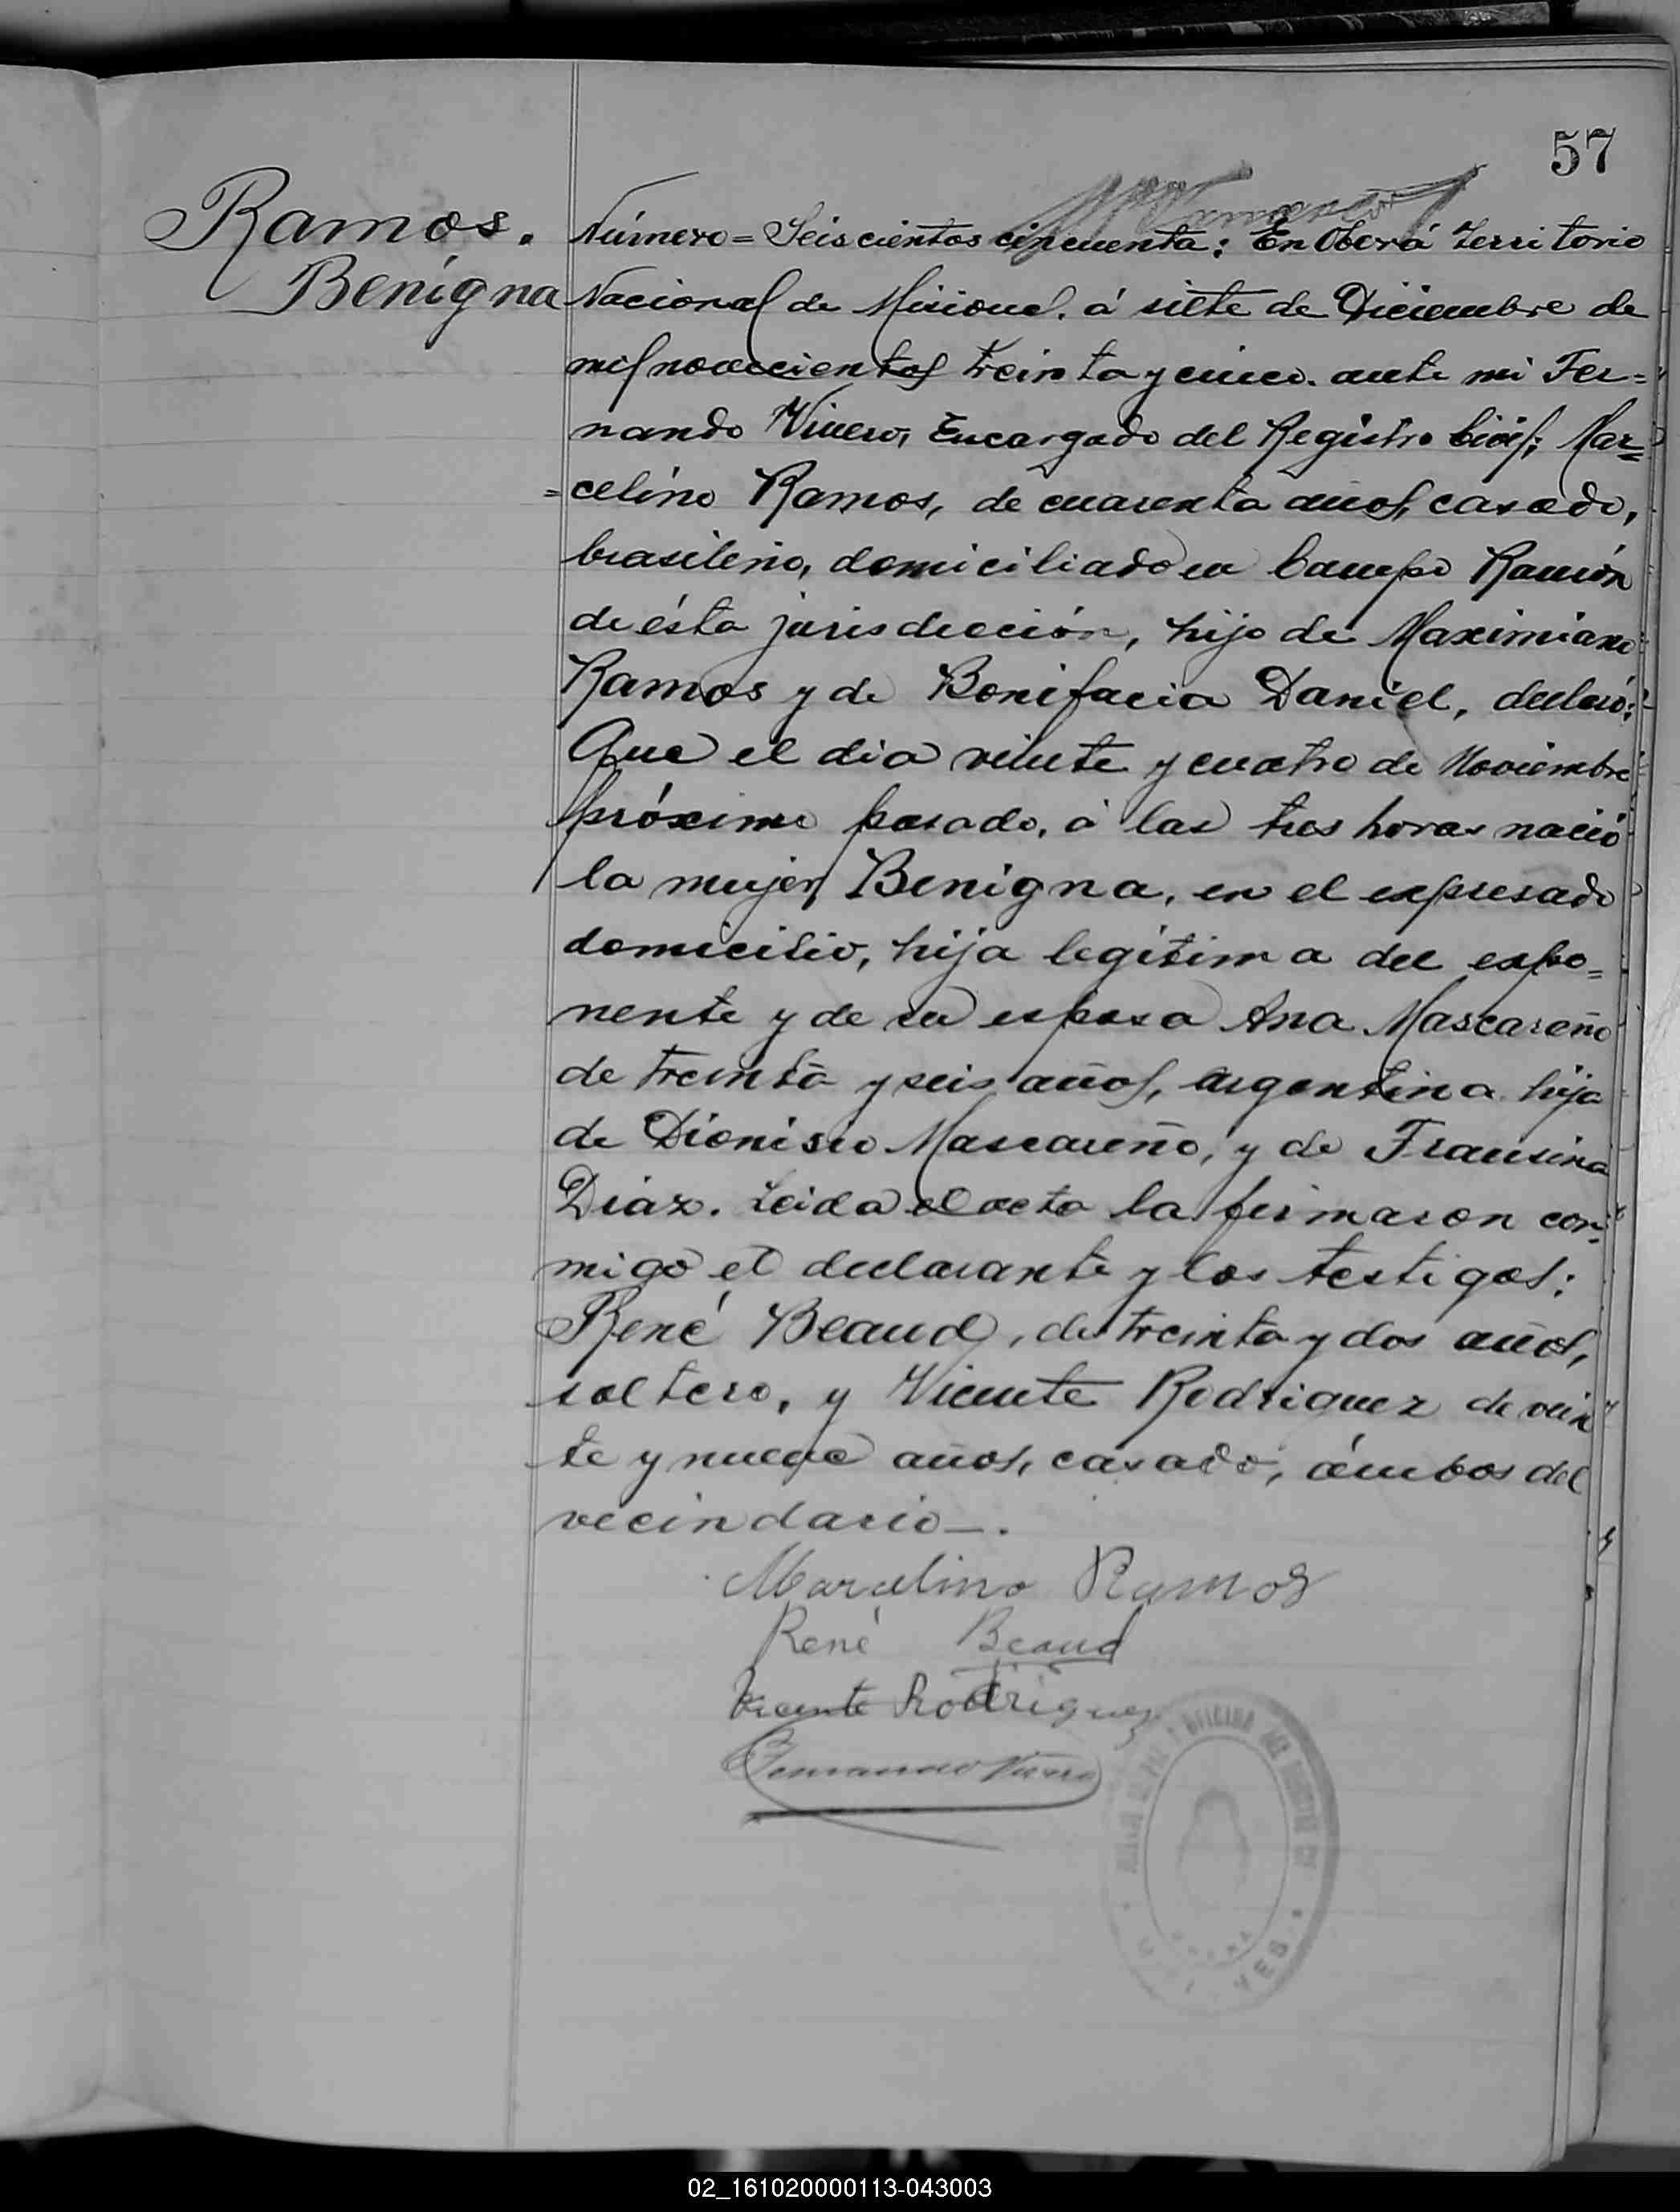 57
Ramos.
Benigna
Número = Seiscientos cincuenta: En Oberá Territorio
Nacional de Misiones. á siete de Diciembre de
mil novecientos treinta y cinco. ante mi Fer=
nando Vivero, Encargado del Registro Civil; Mar=
=celino Ramos, de cuarenta años, casado,
brasileño, domiciliado en Campo Ramón
de ésta jurisdicción, hijo de Maximiano
Ramos y de Bonifacia Daniel, declaró:
Que el dia veinte y cuatro de Noviembre
próximo pasado, á las tres horas nació
la mujer Benigna, en el expresado
domicilio, hija legítima del expo=
nente y de su esposa Ana Mascareño
de treinta y seis años, argentina hija
de Dionisio Mascareño, y de Fransina
Diaz. Leida el acta la firmaron con-
migo el declarante y los testigos:
René Beaud, de treinta y dos años,
soltero, y Vicente Rodriguez de vein
te y nueve años, casado, ámbos del
vecindario—.
Marcelino Ramos
René Beaud
Vicente Rodriguez
Fernando
02_161020000113-043003